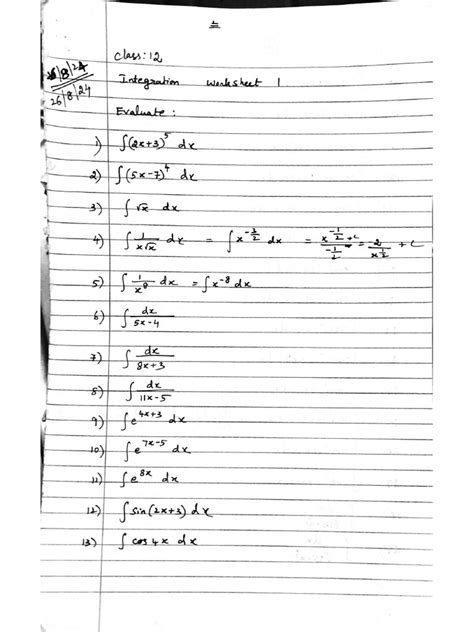 Class: 12
26/8/24
26/8/24
Integration Worksheet 1
Evaluate:
1) ∫(2x+3)^5 dx
2) ∫(5x-7)^4 dx
3) ∫ √x dx
4) ∫ 1/(x√x) dx = ∫ x^(-3/2) dx = x^(-1/2)/(-1/2) + c = -2/x^(1/2) + c
5) ∫ 1/x^8 dx = ∫ x^-8 dx
6) ∫ dx/(5x-4)
7) ∫ dx/(8x+3)
8) ∫ dx/(11x-5)
9) ∫ e^(4x+3) dx
10) ∫ e^(7x-5) dx
11) ∫ e^(8x) dx
12) ∫ sin(2x+3) dx
13) ∫ cos 4x dx